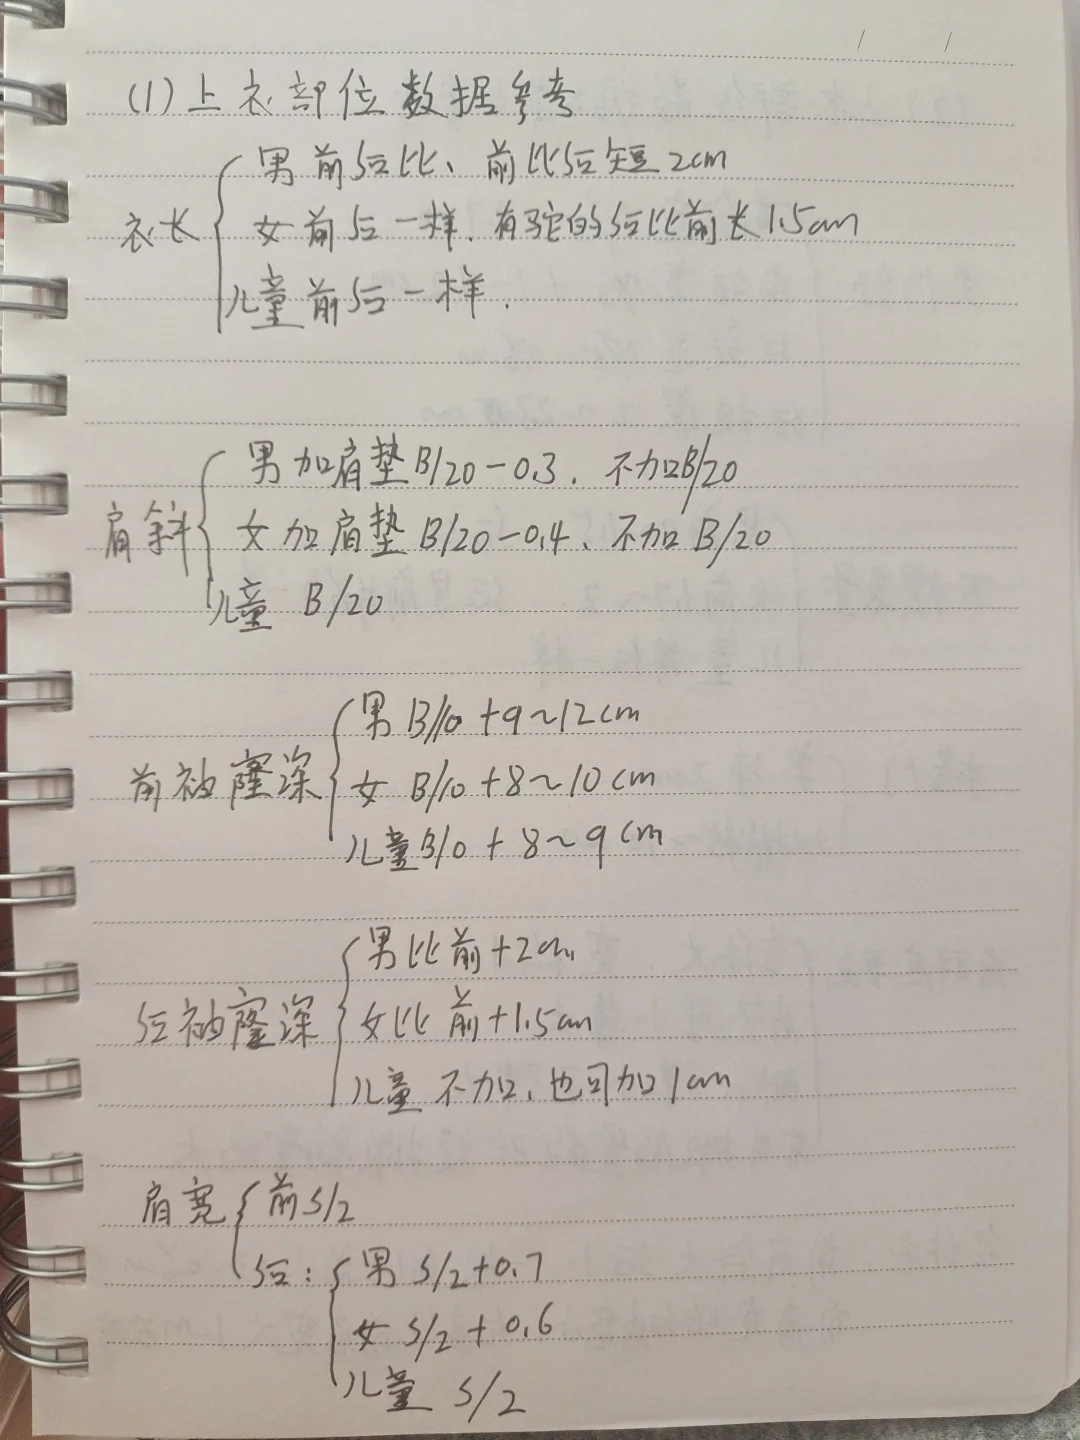 (1)上衣部位数据参考
男前后比、前比后短2cm
衣长 女前后一样.有驼的后比前长1.5cm
儿童前后一样.
男加肩垫B/20-0.3. 不加B/20
肩斜 女加肩垫B/20-0.4、不加B/20
儿童 B/20
男B/10+9~12cm
前袖窿深 女 B/10+8~10cm
儿童B/10+8~9cm
男比前+2cm
后袖窿深 女比前+1.5cm
儿童 不加、也可加1cm
肩宽 前S/2
后: 男 S/2+0.7
女 S/2+0.6
儿童 S/2